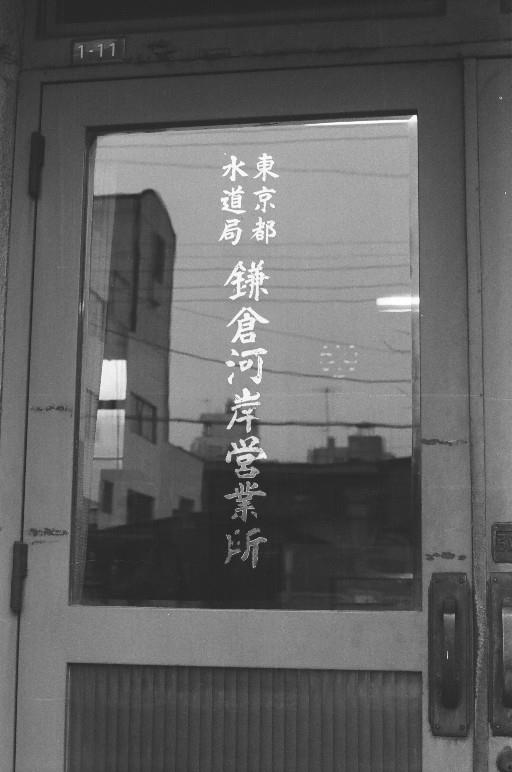 1-11
東京都
水道局
鎌倉河岸営業所